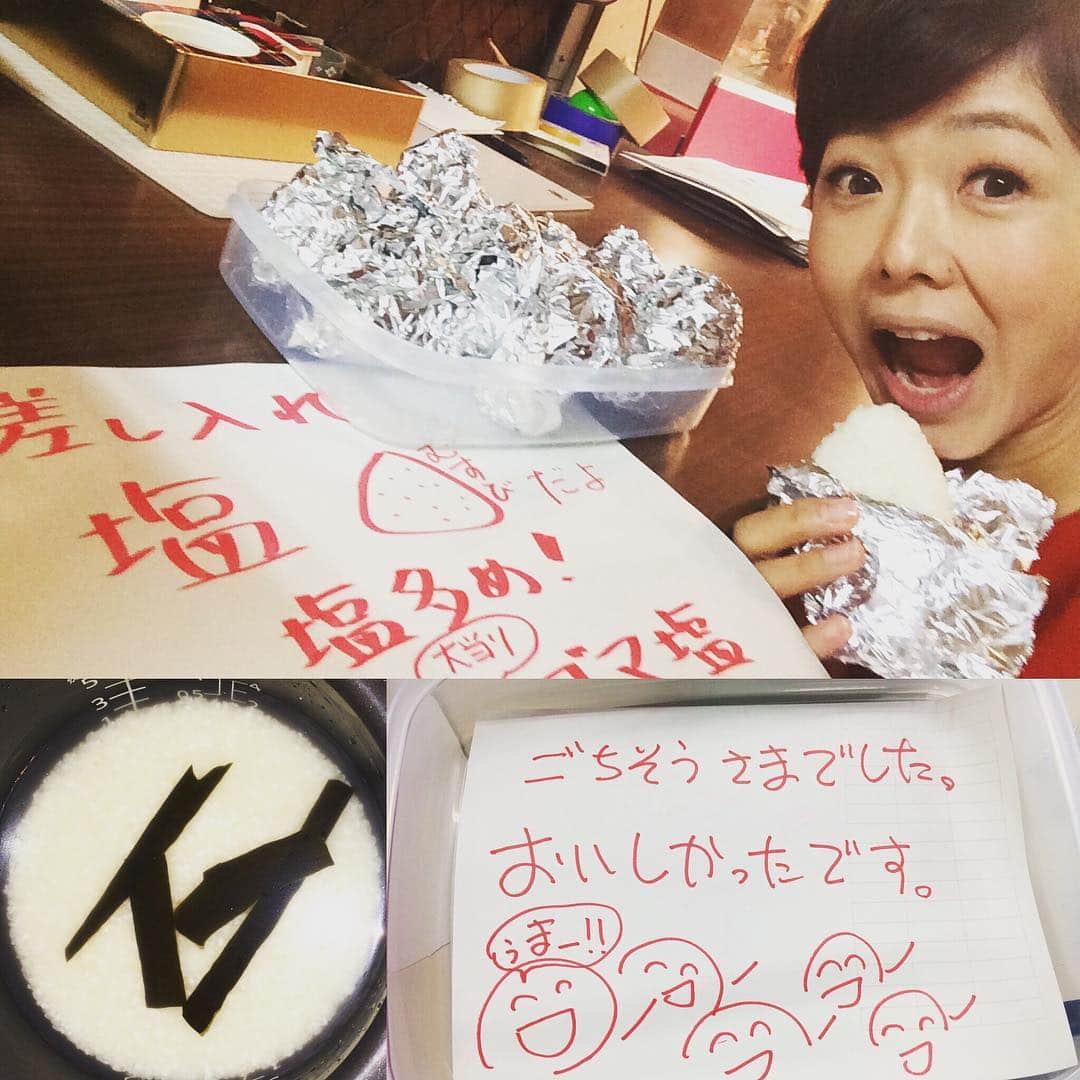 差し入れ
むすび だよ
塩
塩多め!
大当り
ゴマ塩
ごちそうさまでした。
おいしかったです。
うまー!!